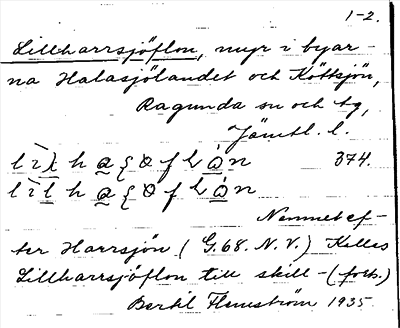 1-2.
Lillharrsjöflon, myr i byar-
na Halasjölandet och Köttsjön,
Ragunda sn och tg,
Jämtl. l.
374.
Namnet ef-
ter Harrsjön (G.68. N.V.) Kallas
Lillharrsjöflon till skill- (forts.)
Bertil Flemström 1935.